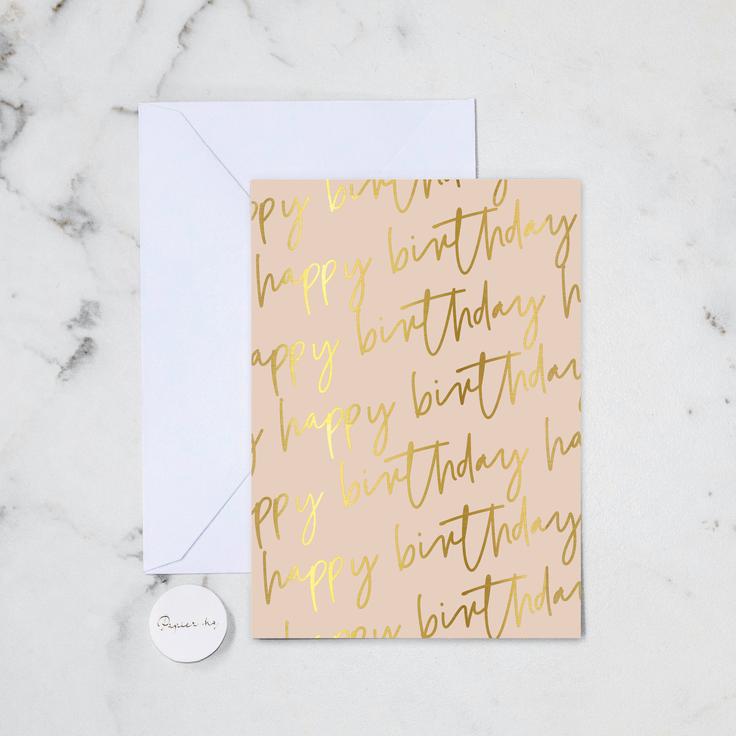 ppy birthday
happy birthday
appy birthday h
y happy birthday
ppy birthday ha
happy birthday
happy birthday
Papier.hq